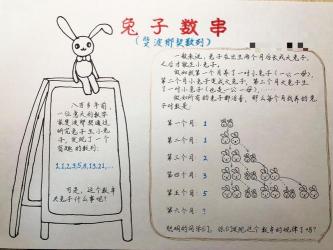 兔子数串
(斐波那契数列)
八百多年前,
一位意大利数学
家斐波那契通过
研究兔子生小兔
子,发现了一个
有趣的数列:
1,1,2,3,5,8,13,21,…
可是,这个数串
大兔子什么事呢?
一般来说,兔子在出生两个月后长成大兔子,
后才能生小兔子。
假如我第一个月养了一对小兔子(一公一母),
第二个月小兔子变成大兔子,第三个月大兔子生
了一对小兔子(也是一公一母)……
假如所有的兔子都活着,那么每个月我养的兔
子对数是
第一个月: 1
第二个月: 1
第三个月: 2
第四个月: 3
第五个月: 5
第六个月: ?
聪明的同学们,你们发现这个数串的规律了吗?